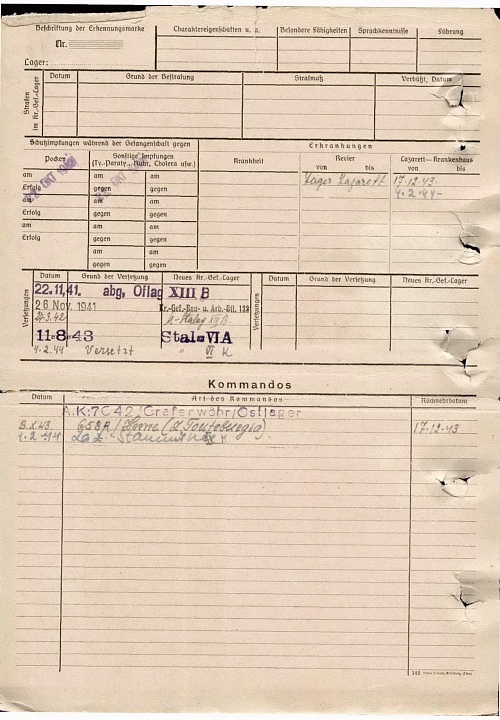 Beschriftung der Erkennungsmarke
Nr.
Lager:
Charaktereigenschaften u. a.
Besondere Fähigkeiten
Sprachkenntnisse
Führung
Strafen im Kr.-Gef.-Lager
Datum
Grund der Bestrafung
Strafmaß
Verbüßt, Datum
Schutzimpfungen während der Gefangenschaft gegen
Erkrankungen
Pocken
Sonstige Impfungen
(Ty.-Paraty., Ruhr, Cholera usw.)
Krankheit
Revier
von bis
Lazarett — Krankenhaus
von bis
am
am
am
Lager Lazarett
17.12.43.
Erfolg
gegen
gegen
4.2.44-
am
am
am
Erfolg
gegen
gegen
am
am
am
Erfolg
gegen
gegen
am
am
gegen
gegen
OKT 1941
Versetzungen
Datum
Grund der Versetzung
Neues Kr.-Gef.-Lager
Versetzungen
Datum
Grund der Versetzung
Neues Kr.-Gef.-Lager
22.11.41. abg, Oflag XIII B
26 Nov. 1941
Kr.-Gef.-Bau- u. Arb.-Btl. 133
11-8-43
Stal=VI A
4.2.44 Versetzt " VI K
Kommandos
Datum
Art des Kommandos
Rückkehrdatum
A.K: 7C42/Grafenwöhr/Ostlager
8.X.43.
658R/Herne
17-12-43
4.2.44
Laz.
145